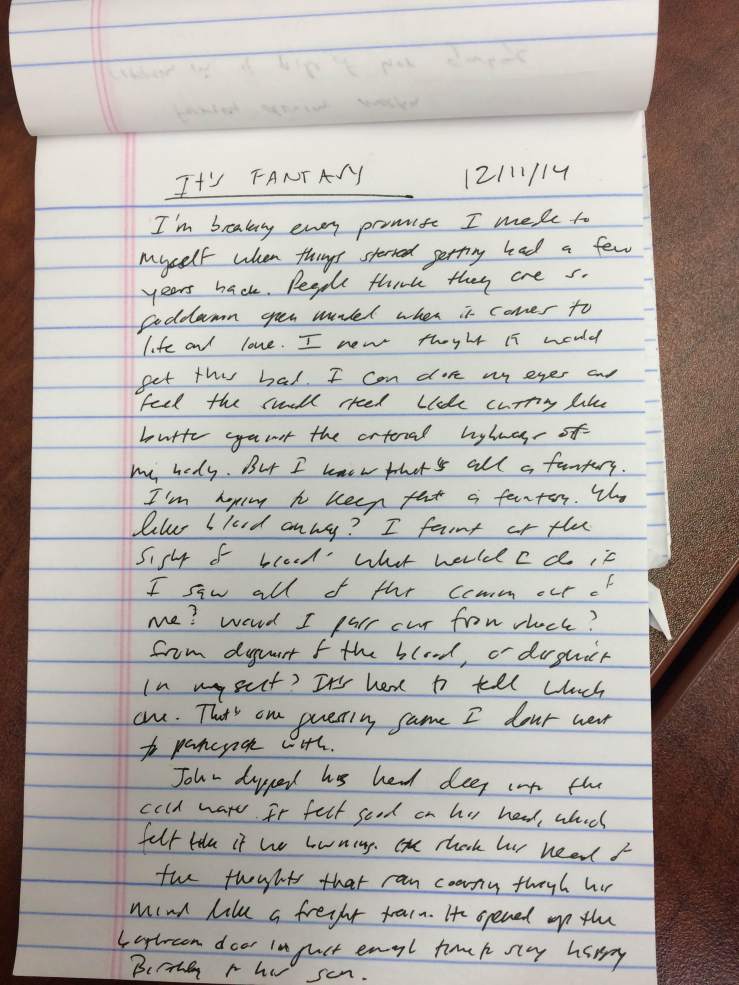 It's FANTASY 12/11/14
I'm breaking every promise I made to
myself when things started getting bad a few
years back. People think they are so
goddamn open minded when it comes to
life and love. I never thought it would
get this bad. I can close my eyes and
feel the small steel blade cutting like
butter against the arterial highways of
my body. But I know that's all a fantasy.
I'm hoping to keep that a fantasy. Who
likes blood anyway? I faint at the
sight of blood. What would I do if
I saw all of this coming out of
me? Would I pass out from shock?
From disgust of the blood, or disgust
in myself? It's hard to tell which
one. That's one guessing game I dont want
to participate with.
John dipped his head deep into the
cold water. It felt good on his head, which
felt like it was burning. He shook his head of
the thoughts that ran coursing though his
mind like a freight train. He opened up the
bathroom door in just enough time to say happy
Birthday to his son.